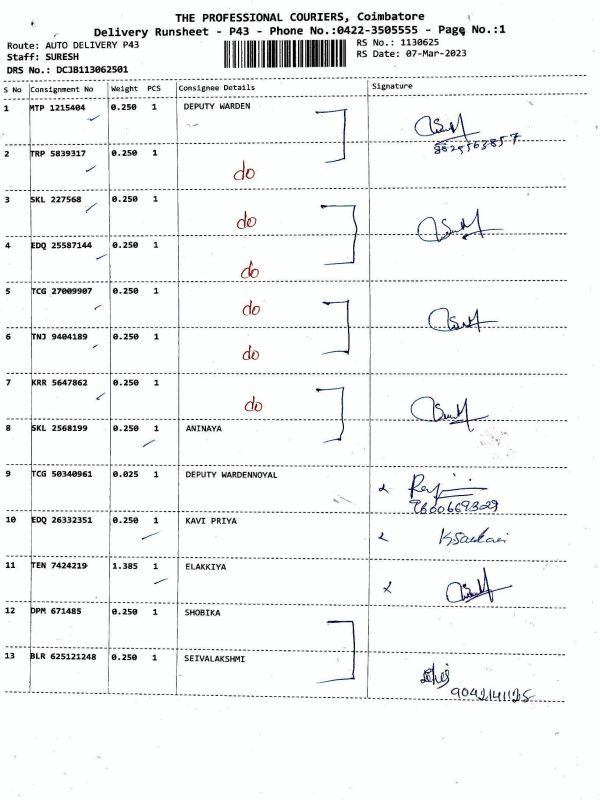 THE PROFESSIONAL COURIERS, Coimbatore
Delivery Runsheet - P43 - Phone No.:0422-3505555 - Page No.:1
Route: AUTO DELIVERY P43 RS No.: 1130625
Staff: SURESH RS Date: 07-Mar-2023
DRS No.: DCJB113062501
S No Consignment No Weight PCS Consignee Details Signature
1 MTP 1215404 0.250 1 DEPUTY WARDEN
2 TRP 5839317 0.250 1 do
3 SKL 227568 0.250 1 do
4 EDQ 25587144 0.250 1 do
5 TCG 27009907 0.250 1 do
6 TNJ 9404189 0.250 1 do
7 KRR 5647862 0.250 1 do
8 SKL 2568199 0.250 1 ANINAYA
9 TCG 50340961 0.025 1 DEPUTY WARDENNOYAL
9600669329
10 EDQ 26332351 0.250 1 KAVI PRIYA
11 TEN 7424219 1.385 1 ELAKKIYA
12 DPM 671485 0.250 1 SHOBIKA
13 BLR 625121248 0.250 1 SEIVALAKSHMI
9042141125